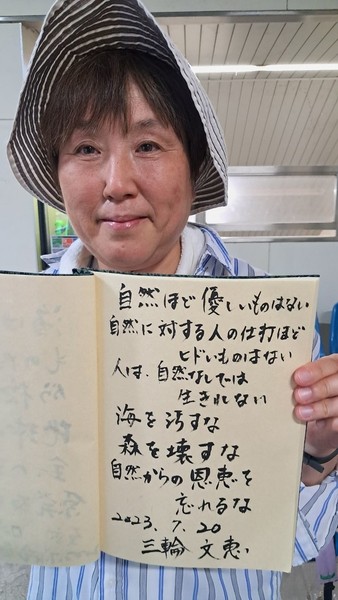 自然ほど優しいものはない
自然に対する人の仕打ほど
ヒドいものはない
人は、自然なしでは
生きれない
海を汚すな
森を壊すな
自然からの恩恵を
忘れるな
2023.7.20
三輪 文恵